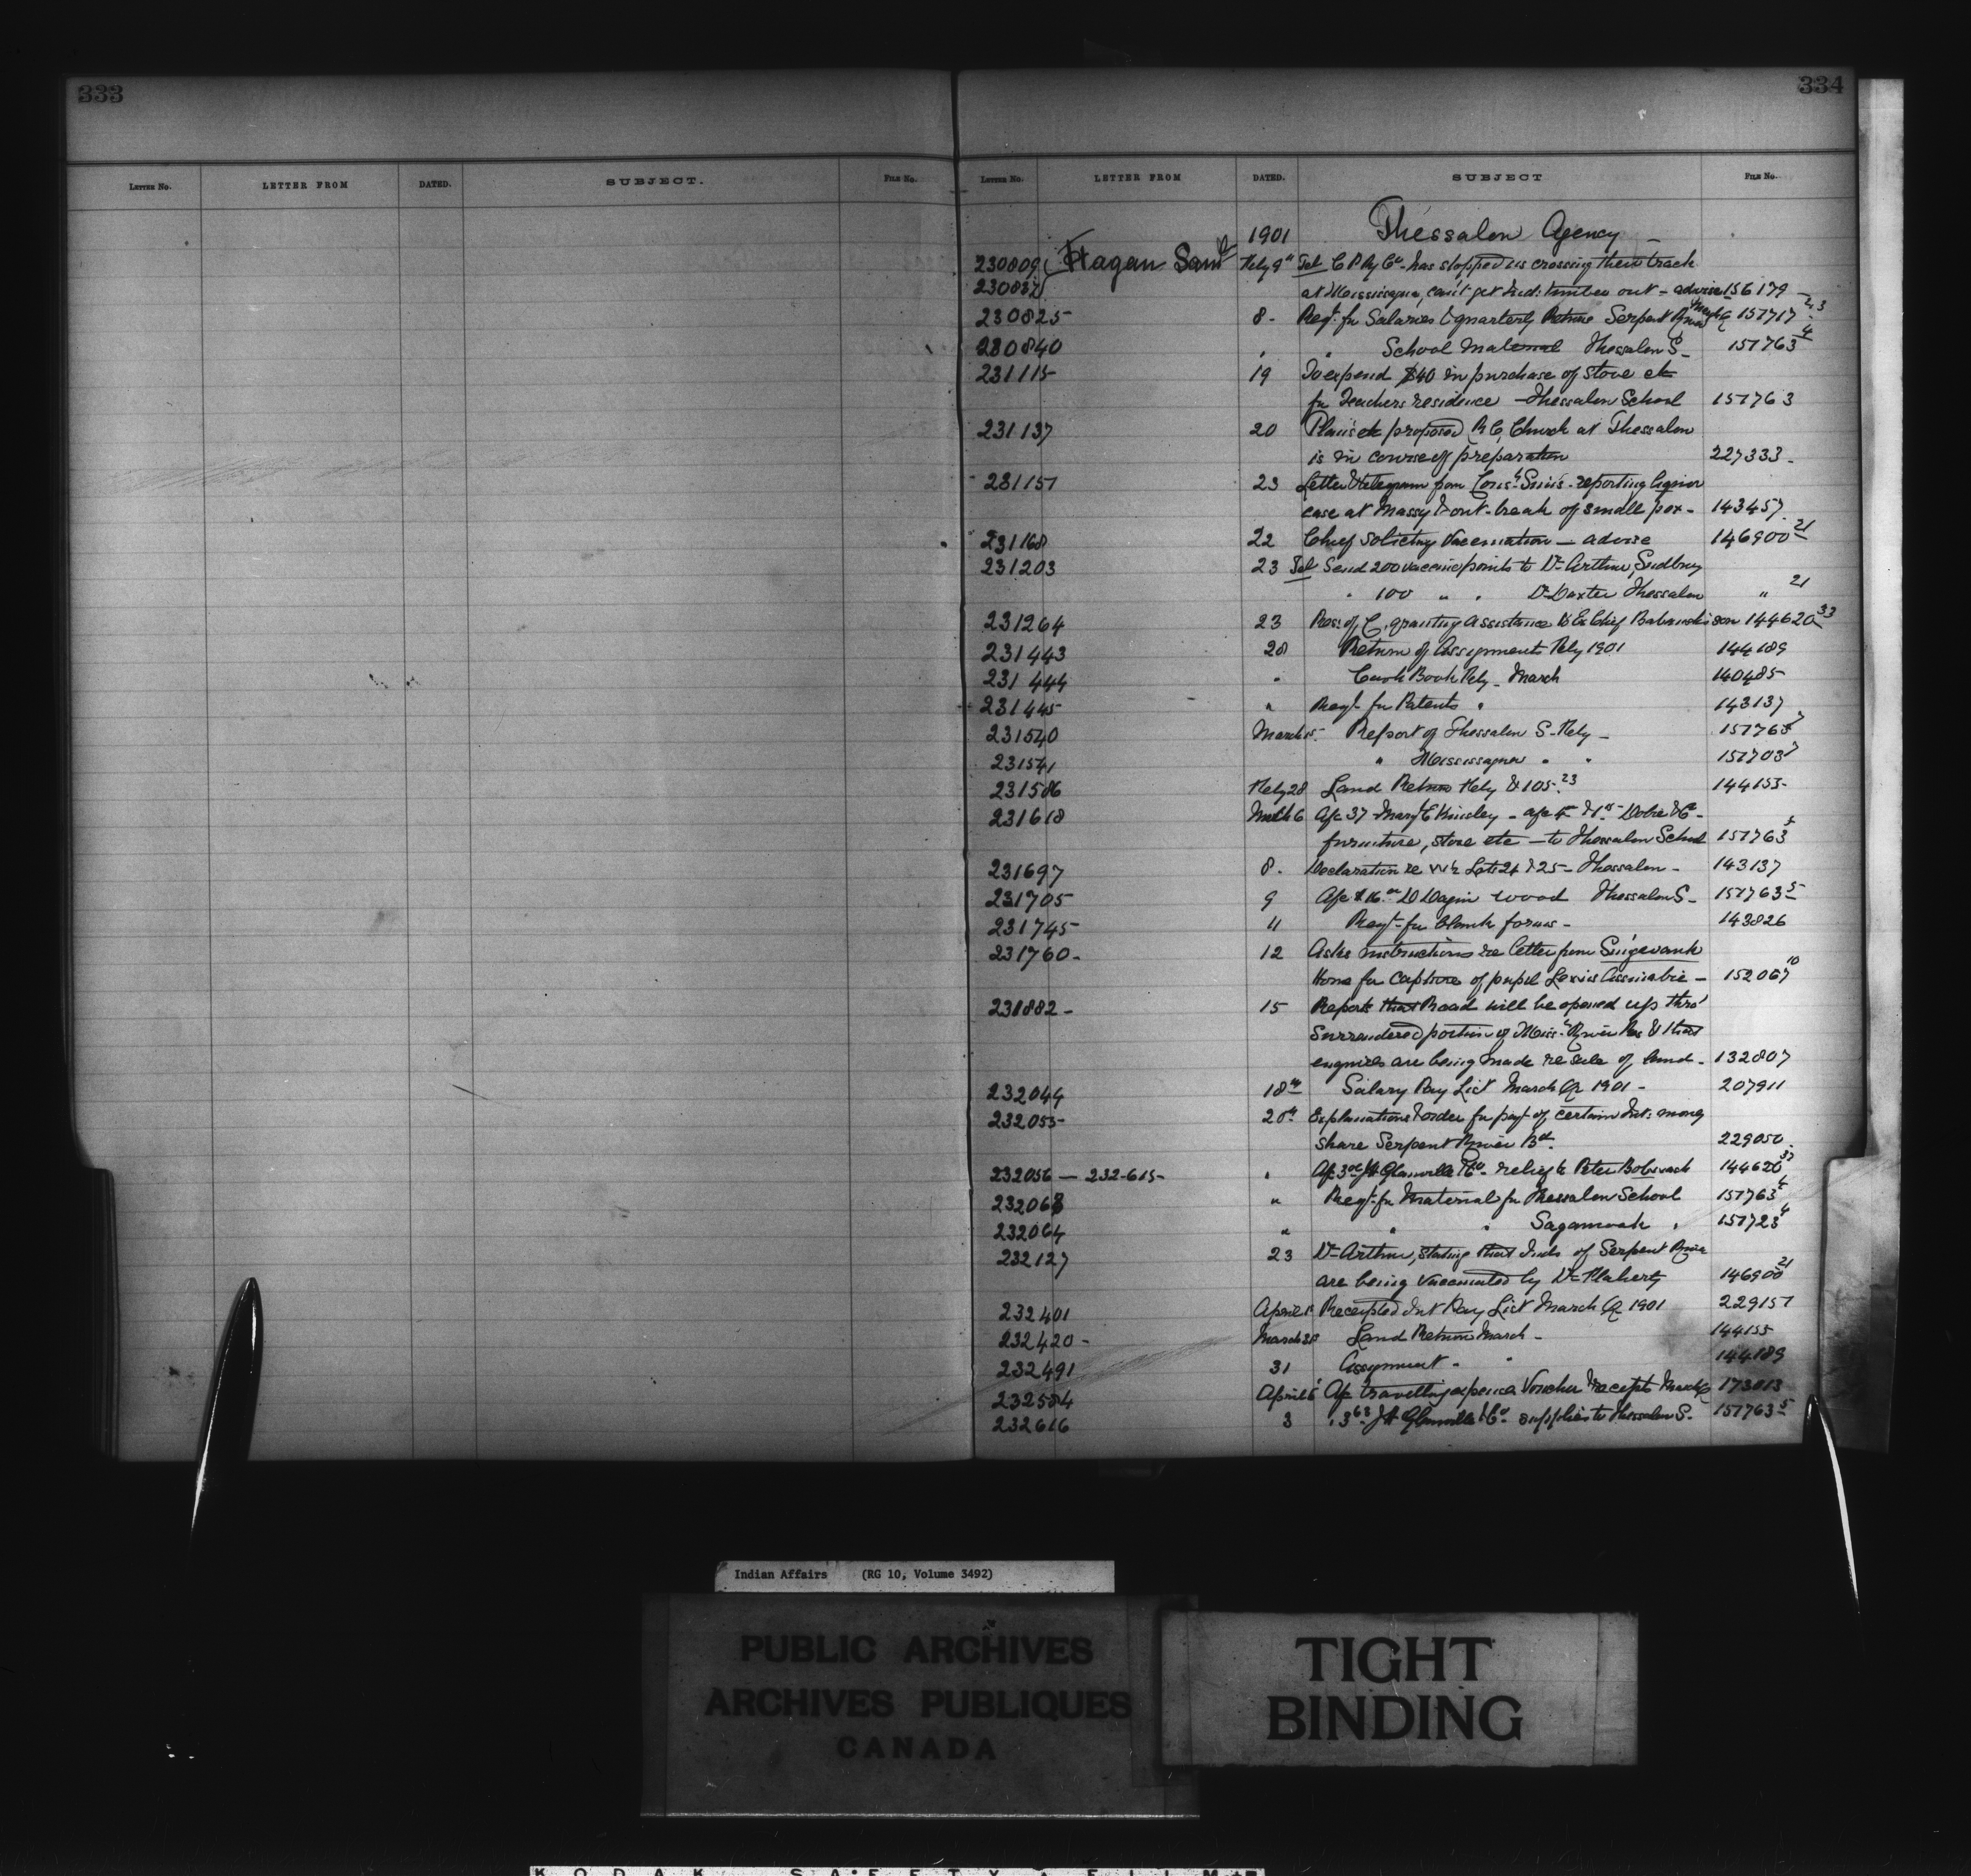 333
334
LETTER NO. LETTER FROM DATED. SUBJECT. FILE NO.
LETTER NO. LETTER FROM DATED. SUBJECT FILE NO.
1901 Thessalon Agency -
230809 Hagan Saml Feby 9th Tel C P Ry Co- has stopped us crossing their track
230837 at Mississagua, can't get Ind: timber out - advise 156179 -
230825- 8. Reqt. for Salaries & quarterly Return Serpent River 151717
230840 " " School Material Thessalon S- 151763 4
231115- 19 To expend $40 in purchase of stove etc
for Teachers residence - Thessalon School 151763
231137 20 Plans etc proposed R C, Church at Thessalon
is in course of preparation 227333-
231151 23 Letter & telegram from Sims- reporting liquor
case at Massy & out-break of small pox- 143457
231168 22 Chief soliciting Vaccination - advise 146900 21
231203 23 Tel Send 200 vaccine points to Dr Arthur, Sudbury
" 100 " " Dr Dexter Thessalon " 21
231264 23 Res: of C. granting assistance to Ex Chief 144620 33
231443 28 Return of Assignments Feby 1901 144189
231444 " Cash Book Feby - March 140485
231445 " Reqt for Patents " 143137
231540 March 5. Report of Thessalon S- Feby - 151763 7
231541 " Mississagua " " 151703 7
231586 Feby 28 Land Return Feby $105.23 144155-
231618 March 6 A/c 37 Mary E Kinsley - a/c
furniture, stove etc - to Thessalon School 151763 5
231697 8. Declaration re Lots 24 & 25- Thessalon - 143137
231705 9 A/c $16.00 D wood Thessalon S- 151763 5
231745- 11 Reqt- for blank forms - 143826
231760- 12 Asks instructions re letter from Singwauk
Home for capture of pupil Lewis - 152067 10
231882 - 15 Reports that Road will be opened up thro'
Surrendered portion of Miss: River Res & that
enquiries are being made re sale of land - 132807
232044 18th Salary Pay List March Qr 1901 - 207911
232055- 20th Explanations & order for payt of certain Int: money
share Serpent River Bd. 229050.
232056 - 232-615- " A/c J H Glanville & Co- relief to Peter 144620 33
232063 " Reqt- for Material for Thessalon School 151763 4
232064 " " " Sagamook " 151723 4
232127 23 Dr Arthur, stating that Inds of Serpent River
are being vaccinated by Dr Flaherty 146900 21
232401 April 1 Receipted Int Pay List March Qr 1901 229151
232420 - March 30 Land Return March - 144155
232491 31 Assignment - " 144189
232584 April 6 A/c travelling expenses Voucher receipts March Qr 173013
232616 3 " J H Glanville & Co- supplies to Thessalon S. 151763 5
Indian Affairs (RG 10, Volume 3492)
PUBLIC ARCHIVES
ARCHIVES PUBLIQUES
CANADA
TIGHT
BINDING
KODAK SAFETY FILM